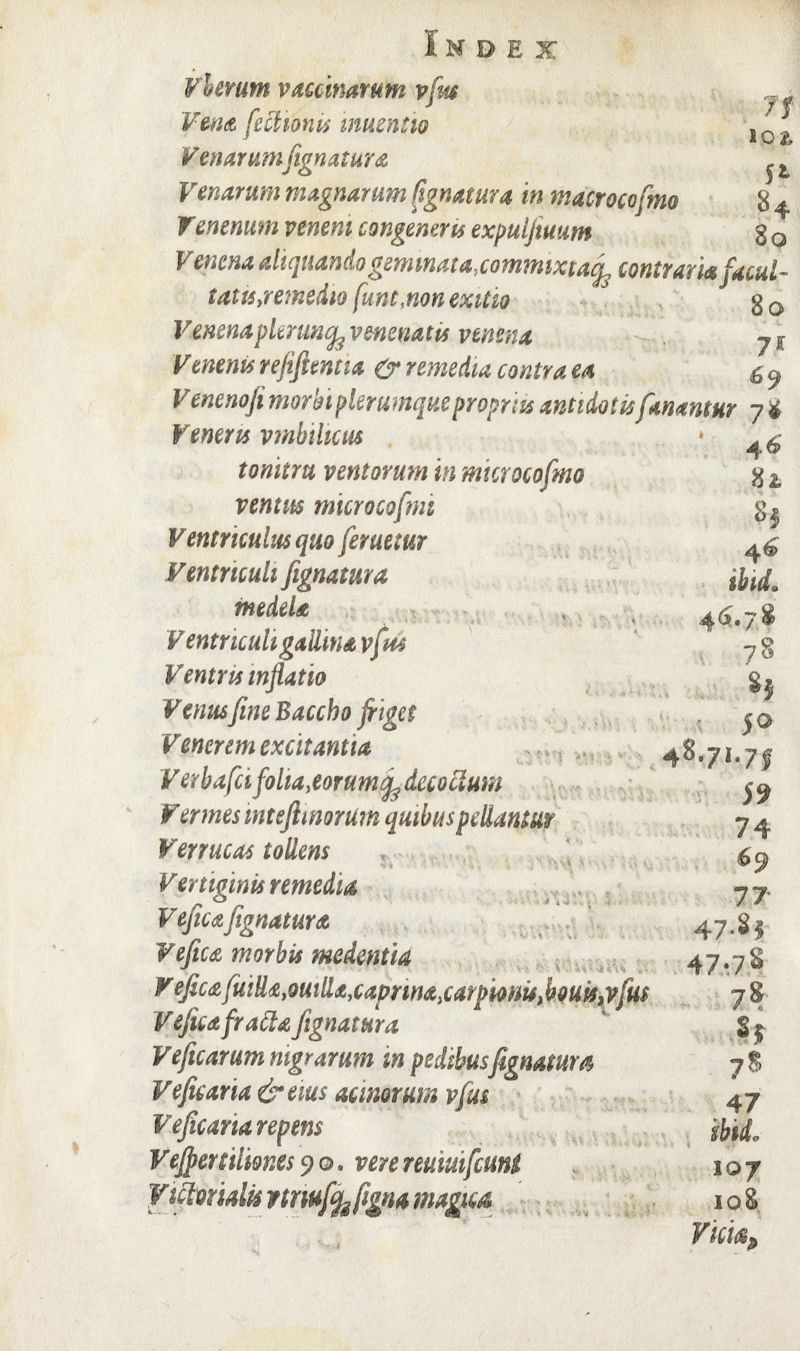 INDEX
Vberum vaccinarum vſus 75
Venæ ſectionis inuentio 102
Venarum ſignaturæ 52
Venarum magnarum ſignatura in macrocoſmo 84
Venenum veneni congeneris expulſiuum 80
Venena aliquando geminata, commixtaq́ꝫ contrariæ facul-
tatis, remedio ſunt, non exitio 80
Venena plerunqꝫ venenatis venena 71
Venenis reſiſtentia & remedia contra ea 69
Venenoſi morbi plerumque propriis antidotis ſanantur 78
Veneris vmbilicus 46
tonitru ventorum in microcoſmo 82
ventus microcoſmi 83
Ventriculus quo ſeruetur 46
Ventriculi ſignatura ibid.
medelæ 46.78
Ventriculi gallinæ vſus 78
Ventris inflatio 83
Venus ſine Baccho friget 50
Venerem excitantia 48.71.75
Verbaſci folia, eorumq́ꝫ decoctum 59
Vermes inteſtinorum quibus pellantur 74
Verrucas tollens 69
Vertiginis remedia 77
Veſicæ ſignaturæ 47.83
Veſicæ morbis medentia 47.78
Veſicæ ſuillæ, ouillæ, caprinæ, carpionis, bouis, vſus 78
Veſicæ fractæ ſignatura 85
Veſicarum nigrarum in pedibus ſignatura 78
Veſicaria & eius acinorum vſus 47
Veſicaria repens ibid.
Veſpertiliones 90. vere reuiuiſcunt 107
Victorialis vtriuſqꝫ ſigna magica 108
Viciæ,